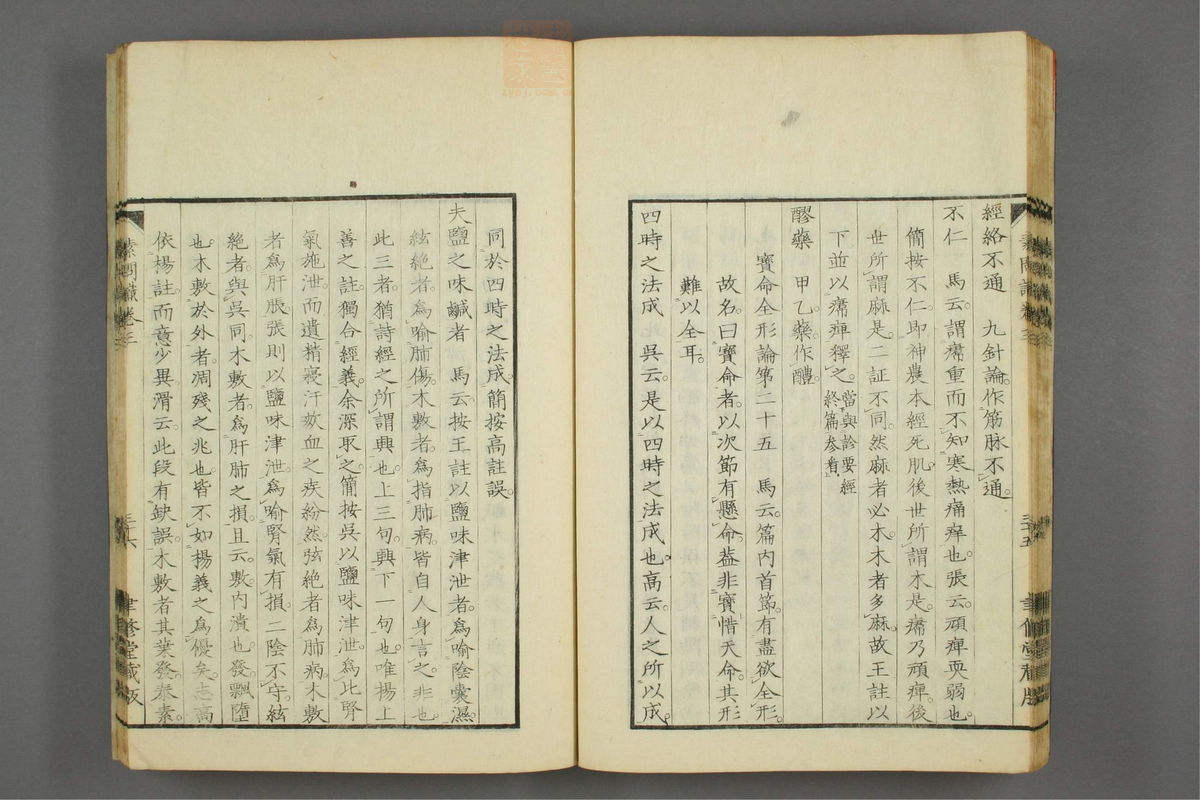 經絡不通　九針論作筋脉不通。
不仁　馬云。謂㿏重而不知寒熱痛痒也。張云。頑痺耎弱也。
簡按不仁。即神農本經死肌。後世所謂木是。㿏乃頑痺。後
世所謂麻是。二証不同。然麻者必木。木者多麻。故王註以
下並以㿏痺釋之。當與診要經
終篇參看
醪藥　甲乙。藥作醴。
寶命全形論第二十五　馬云。篇内首節。有盡欲全形。
故名。曰寶命者。以次節有懸命。葢非寶惜天命。其形
難以全耳。
四時之法成　吳云。是以四時之法成也。高云。人之所以成。
素問識卷三
三十五
聿修堂藏版
同於四時之法成。簡按高註誤。
夫鹽之味鹹者　馬云。按王註以鹽味津泄者。為喻陰囊濕。
絃絶者。為喻肺傷。木敷者。為指肺病。皆自人身言之。非也。
此三者。猶詩經之所謂興也。上三句興下一句也。唯楊上
善之註。獨合經義。余深取之。簡按吳以鹽味津泄。為比腎
氣施泄。而遺精寢汗。㰸血之疾紛然。弦絶者為肺病。木敷
者為肝脹。張則以鹽味津泄。為喻腎氣有損。二陰不守。絃
絶者。與吳同。木敷者。為肝肺之損。且云。敷内潰也。發飄墮
也。木敷於外者。凋殘之兆也。皆不如楊義之為優矣。志高
依楊註。而意少異。滑云。此段有缺誤。木敷者其葉發。㤗素
素問識卷三
三十六
聿修堂藏版